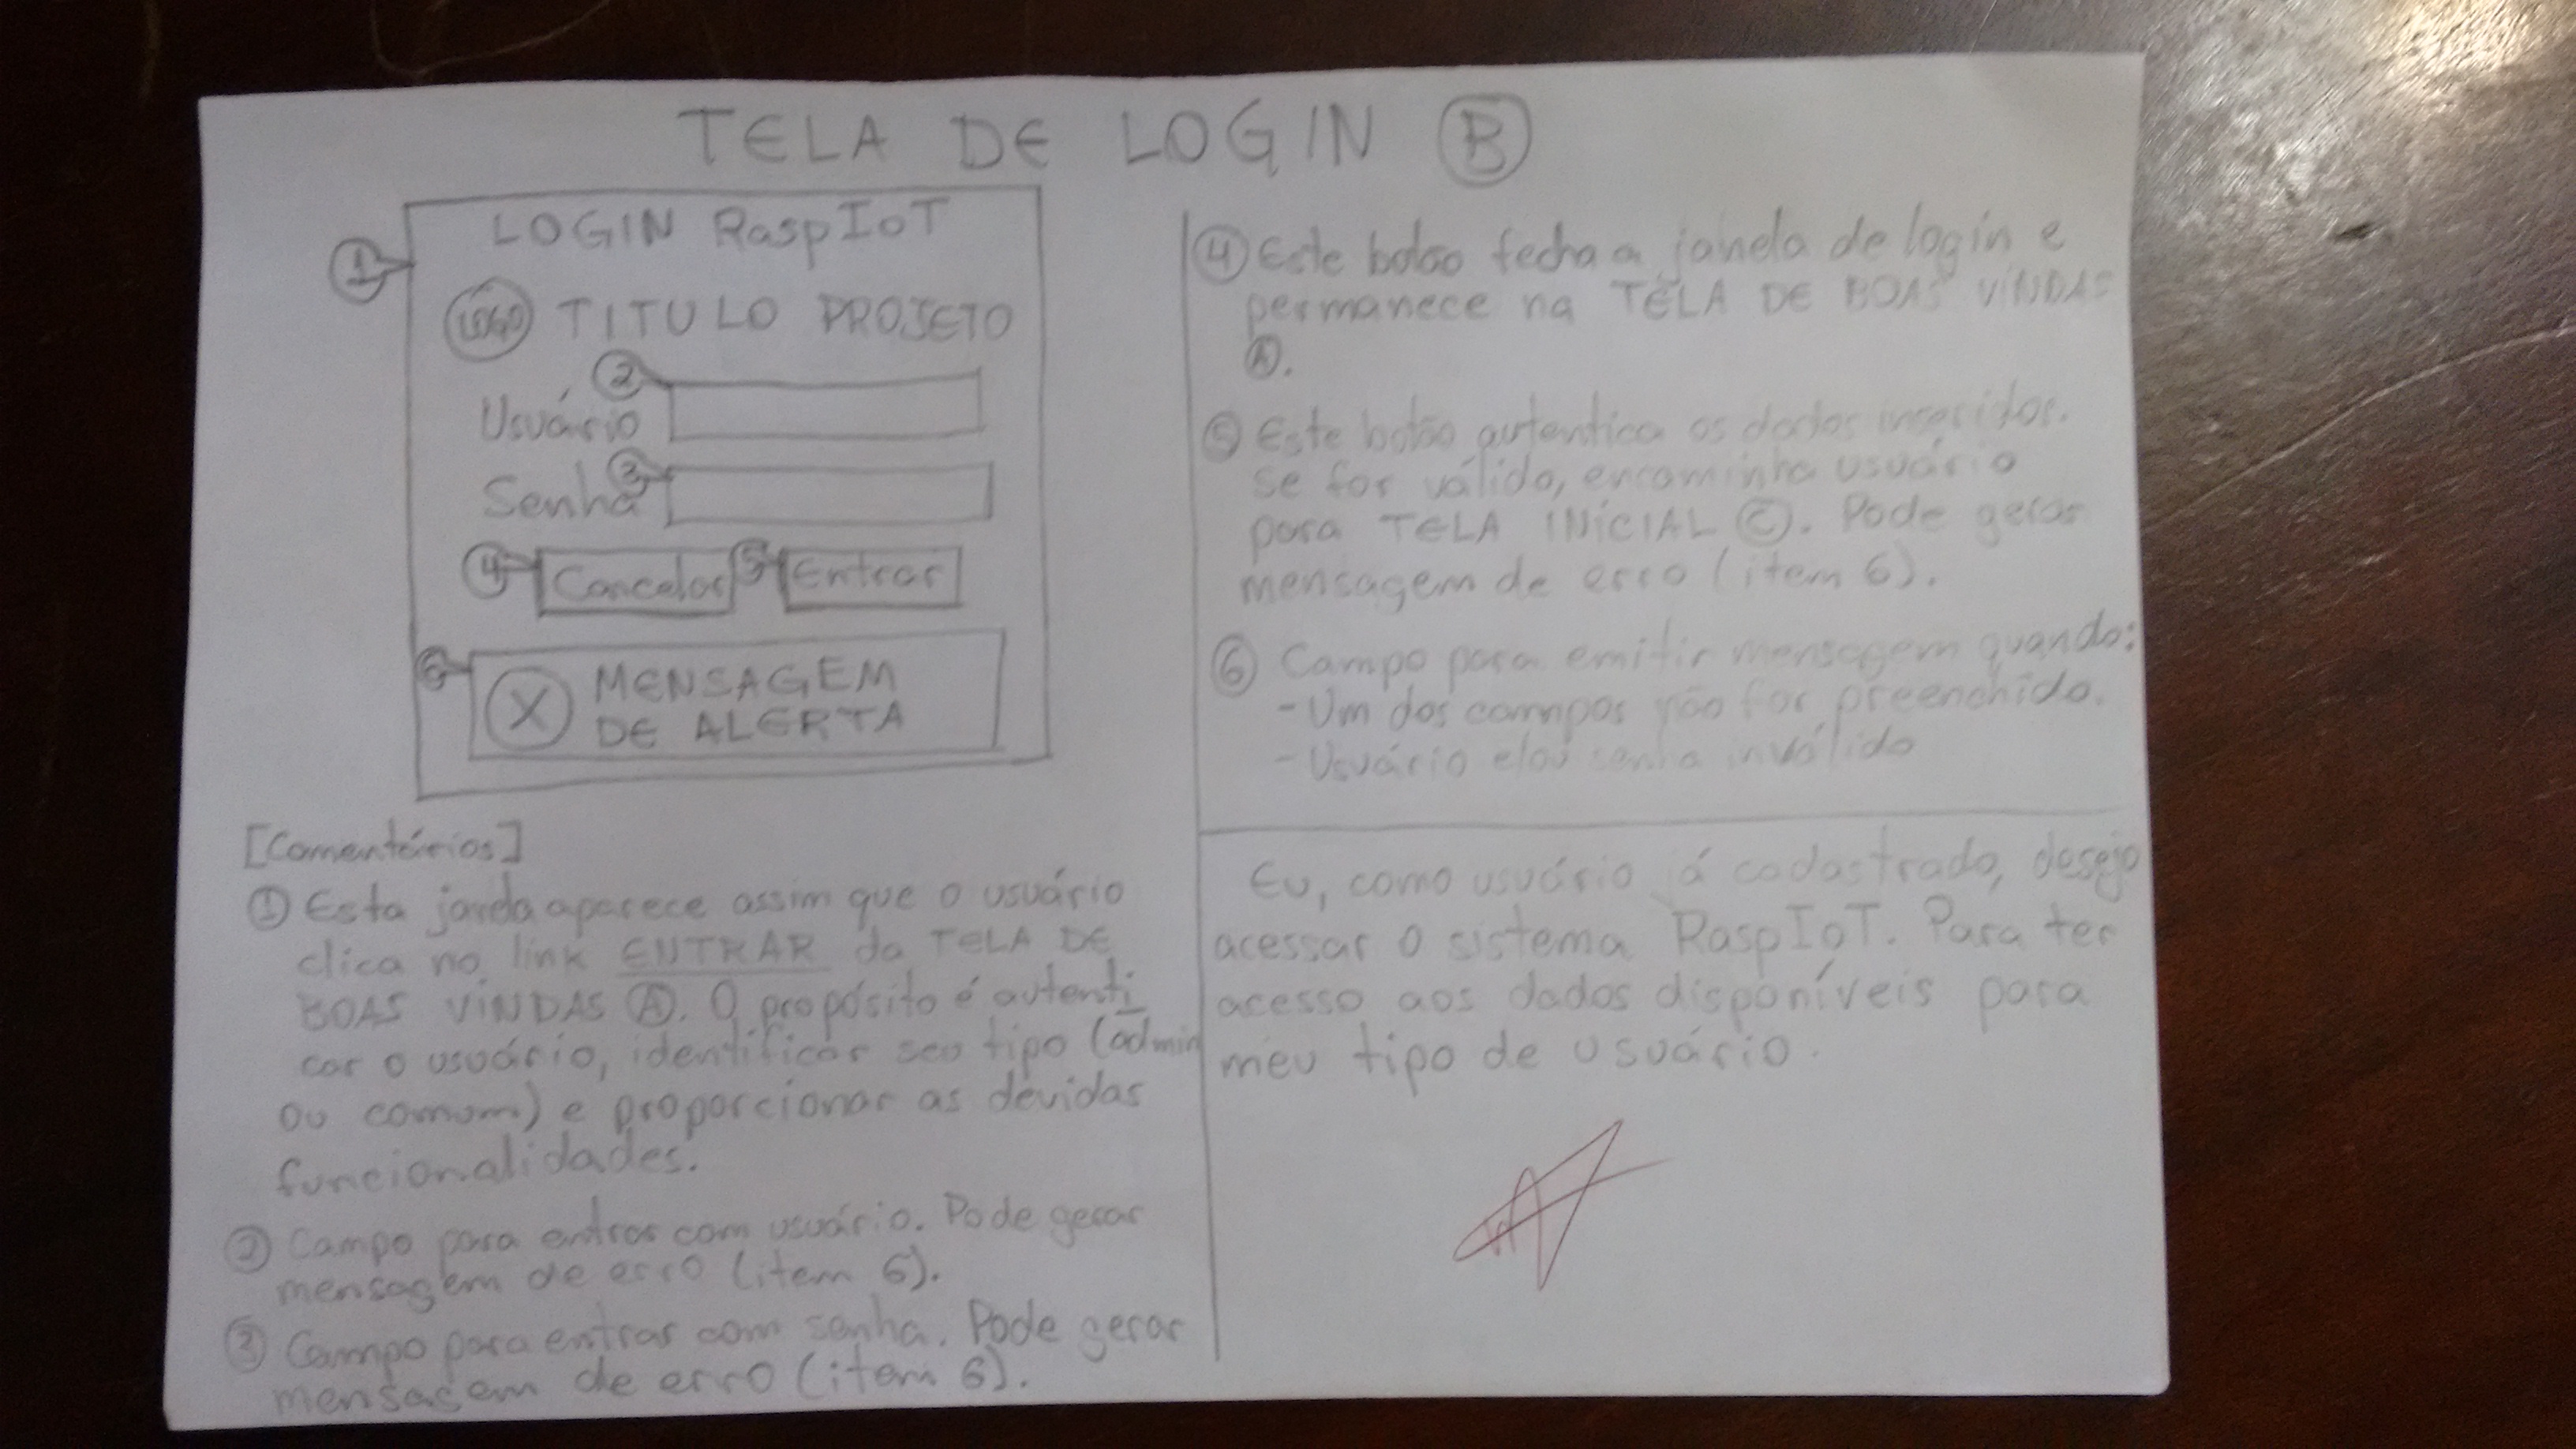 TELA DE LOGIN B
1
LOGIN RaspIoT
LOGO TITULO PROJETO
2
Usuário
3
Senha
4 Cancelar 5 Entrar
6
X MENSAGEM
DE ALERTA
[Comentários]
1 Esta janela aparece assim que o usuário
clica no link ENTRAR da TELA DE
BOAS VINDAS A. O propósito é autenti
car o usuário, identificar seu tipo (admin
ou comum) e proporcionar as devidas
funcionalidades.
2 Campo para entrar com usuário. Pode gerar
mensagem de erro (item 6).
3 Campo para entrar com senha. Pode gerar
mensagem de erro (item 6).
4 Este botão fecha a janela de login e
permanece na TELA DE BOAS VINDAS
A.
5 Este botão autentica os dados inseridos.
se for válido, encaminha usuário
para TELA INICIAL C. Pode gerar
mensagem de erro (item 6).
6 Campo para emitir mensagem quando:
- Um dos campos não for preenchido.
- Usuário e/ou senha inválido
Eu, como usuário já cadastrado, desejo
acessar o sistema RaspIoT. Para ter
acesso aos dados disponíveis para
meu tipo de usuário.